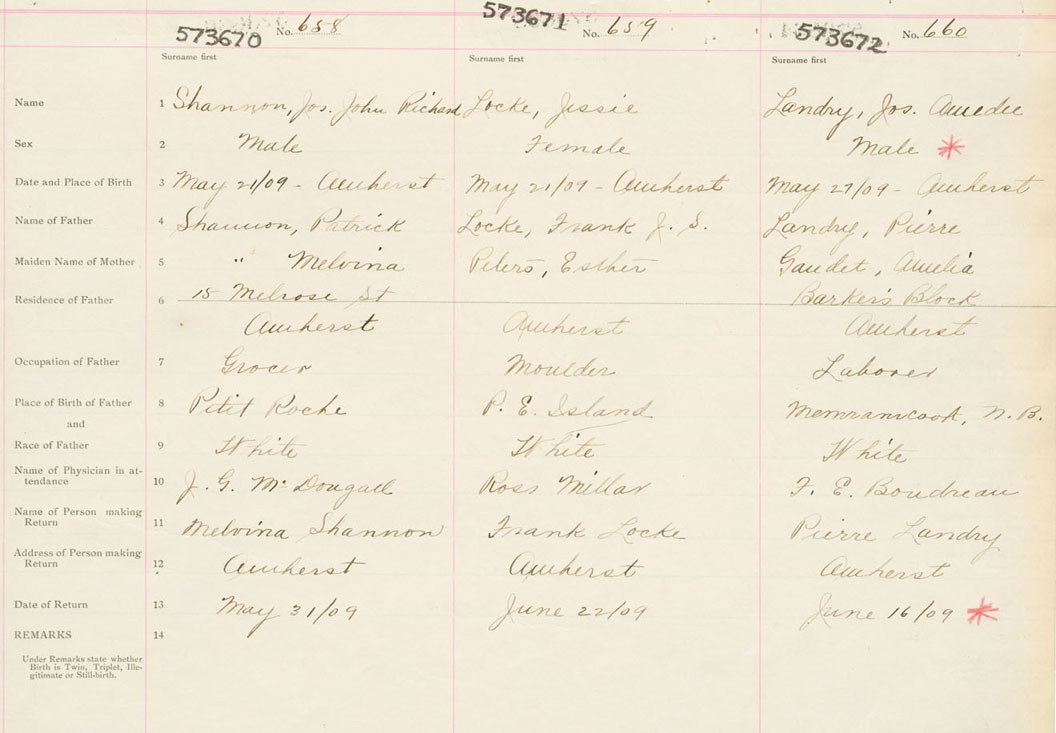 573670 No. 658 573671 No. 659 573672 No. 660
Surname first Surname first Surname first
Name 1 Shannon, Jos. John Richard Locke, Jessie Landry, Jos. Amedee
Sex 2 Male Female Male *
Date and Place of Birth 3 May 21/09 - Amherst May 21/09 - Amherst May 27/09 - Amherst
Name of Father 4 Shannon, Patrick Locke, Frank J. S. Landry, Pierre
Maiden Name of Mother 5 " Melvina Peters, Esther Gaudet, Amelia
Residence of Father 6 15 Melrose St Barker's Block
Amherst Amherst Amherst
Occupation of Father 7 Grocer Moulder Laborer
Place of Birth of Father 8 Petit Roche P. E. Island Memramcook, N. B.
and
Race of Father 9 White White White
Name of Physician in at-
tendance 10 J. G. McDougall Ross Millar F. E. Boudreau
Name of Person making
Return 11 Melvina Shannon Frank Locke Pierre Landry
Address of Person making
Return 12 Amherst Amherst Amherst
Date of Return 13 May 31/09 June 22/09 June 16/09 *
REMARKS 14
Under Remarks state whether
Birth is Twin, Triplet, Ille-
gitimate or Still-birth.